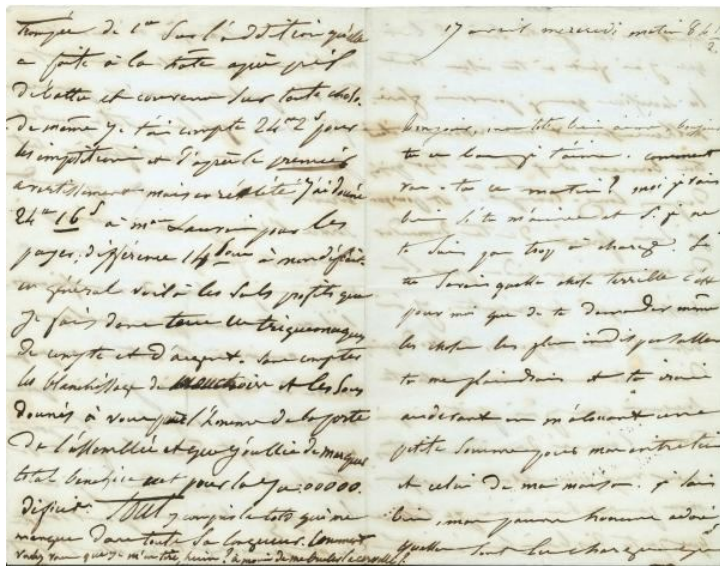 trompée de 1# sur l'addition qu'elle
a faite à la hâte après
débattu et convenu sur toute chose.
De même je t'ai compté 24# 2s pour
les impositions et d'après le premier
avertissement mais en réalité j'ai donné
24# 16s à mme pour les
payer, différence 14 sous à mon déficit.
en général voilà les seuls profits que
je fais dans
de compte et d'argent. Sans compter
les blanchissage de mouchoirs et les sous
donnés à vous par l'homme de la porte
de l'assemblée et que j'oublie de marquer
total bénéfice net pour la Ju : 00000.
déficit. Tout y compris le toto qui me
manque dans toute sa longueur. Comment
voulez-vous que je m'en tire, hein ? à moins de me bruler la cervelle !
17 avril mercredi matin 8 h 1/2
Bonjour, mon toto bien aimé bonjour
je t'aime. comment
vas-tu ce matin ? moi je vais
bien si tu m'aimes et si je ne
te suis pas trop à charge. Si
tu savais quelle chose terrible c'est
pour moi que de te demander même
les choses les plus indispensables
tu me plaindrais et tu irais
au devant en m'allouant une
petite somme pour mon entretien
et celui de ma maison. je sais
bien, mon pauvre homme adoré
quelles sont les charges que